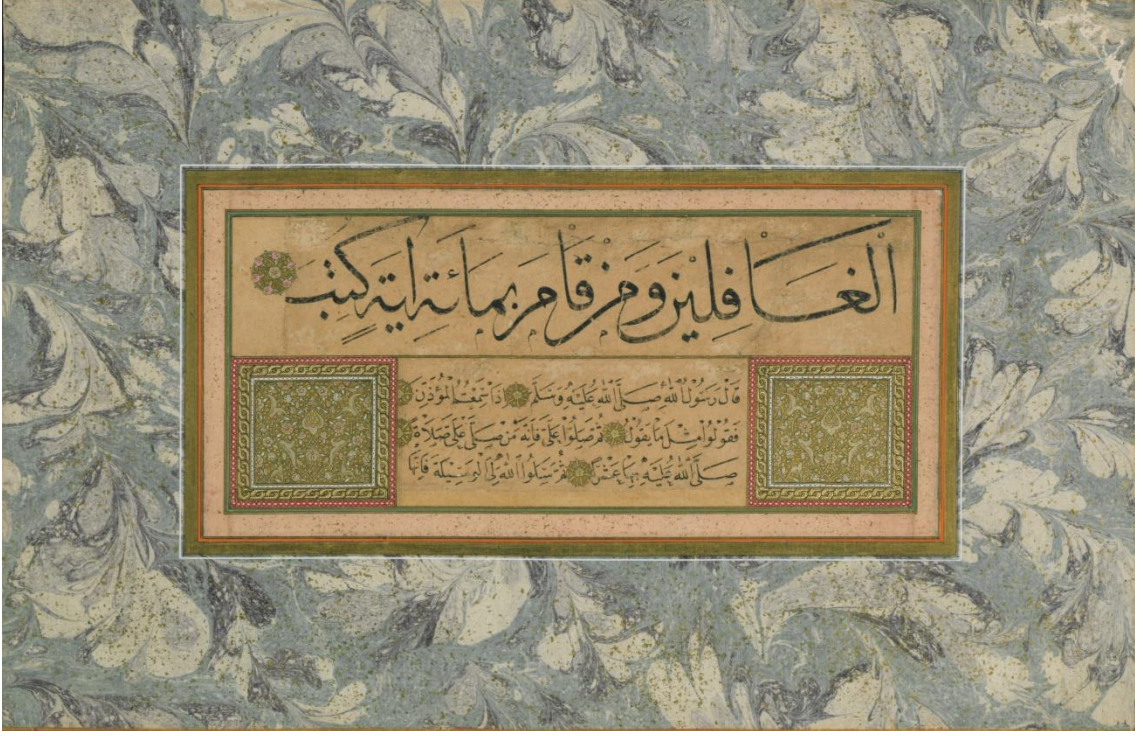 الغافلين ومن قام بمائة اية كتب
قال رسول الله صلى الله عليه وسلم اذا سمعتم المؤذن
فقولوا مثل ما يقول ثم صلوا على فانه من صلى على صلاة
صلى الله عليه بها عشرا ثم سلوا الله لى الوسيلة فانها